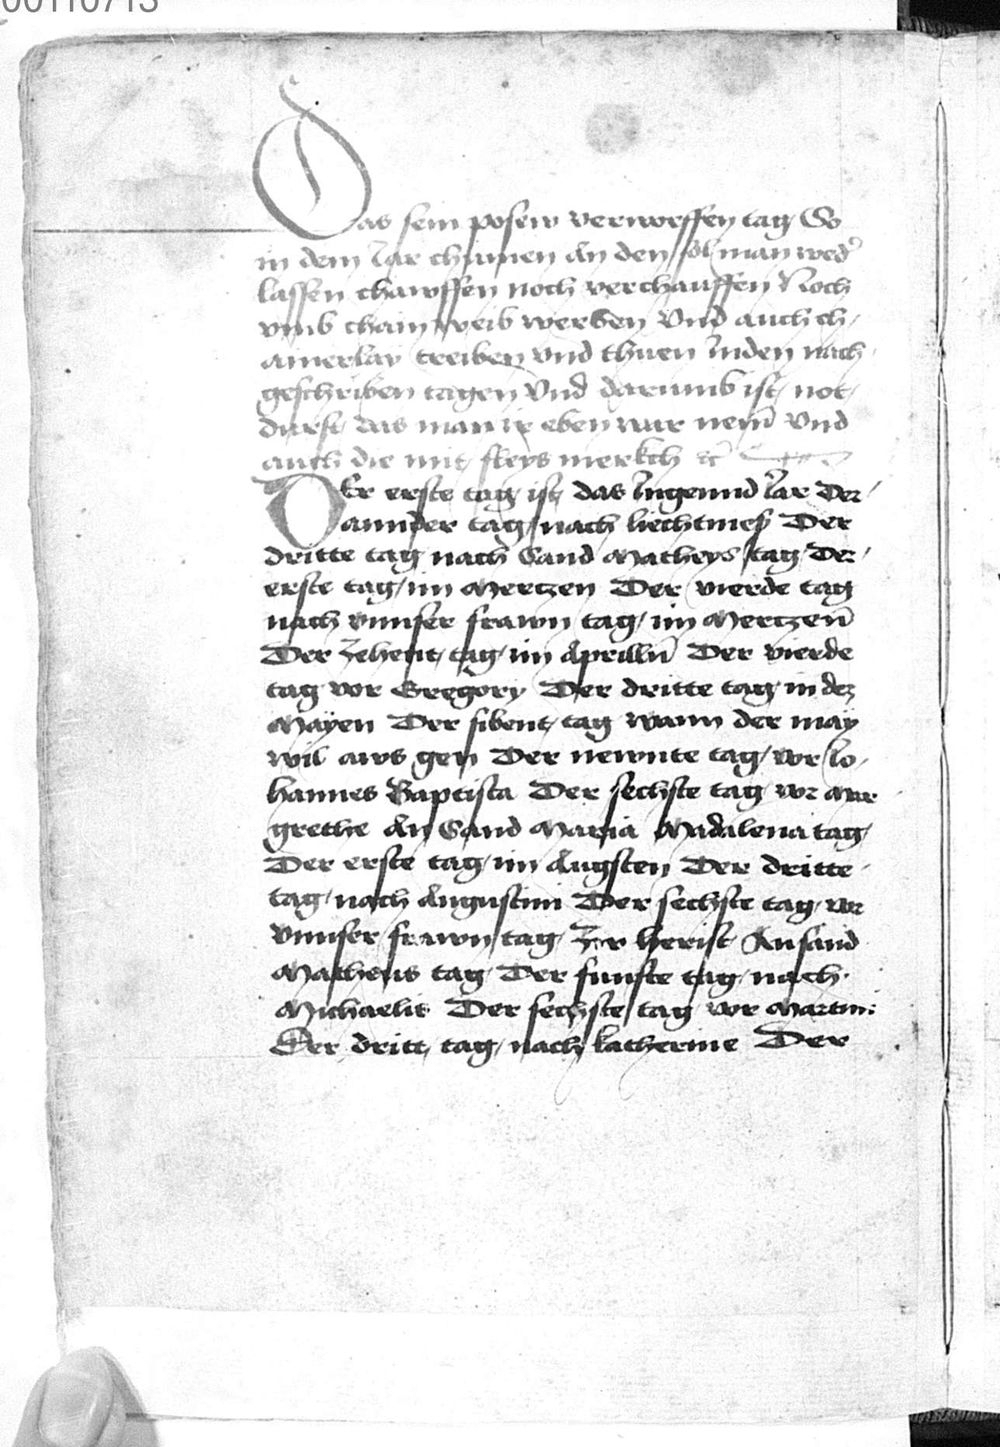 00110713
Das sein posew verworffen tag So
in dem Jar chümen An den sol man wed̉
lassen chawffen noch verchauffen Noch
vmb chain weib werben Vnd auch ch-
ainerlay treiben vnd thuen Jnden nach
geschriben tagen Vnd darumb ist not
durft das man ir eben war nem̄ Vnd
auch die mit fleys merkch ꝛc̄
DEr erste tag ist das Jngeund Jar Der
annder tag nach liechtmess Der
dritte tag nach Sand Matheys tag Der
erste tag im Mertzen Der vierde tag
nach vnnser frawn tag im Mertzen̄
Der Zehent tag im Aprilln̄ Der vierde
tag vor Gregory Der dritte tag in dez
Mayen Der sibent tag wann der may
wil aws gen Der newnte tag vor Jo-
hannes Baptista Der sechste tag vor Mar
grethe An Sand Maria Madalena tag
Der erste tag im Augsten Der dritte
tag nach Augustini Der sechste tag vor
vnnser frawn tag Zer herist An sand
Matheus tag Der funfte tag nach
Michaelis Der sechste tag vor Martini
Der dritt tag nach katherine Der